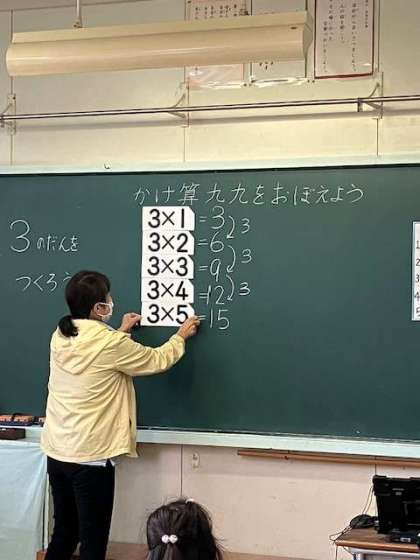 かけ算九九をおぼえよう
3のだんを
つくろう
3×1 =3
3
3×2 =6
3
3×3 =9
3
3×4 =12
3×5 =15